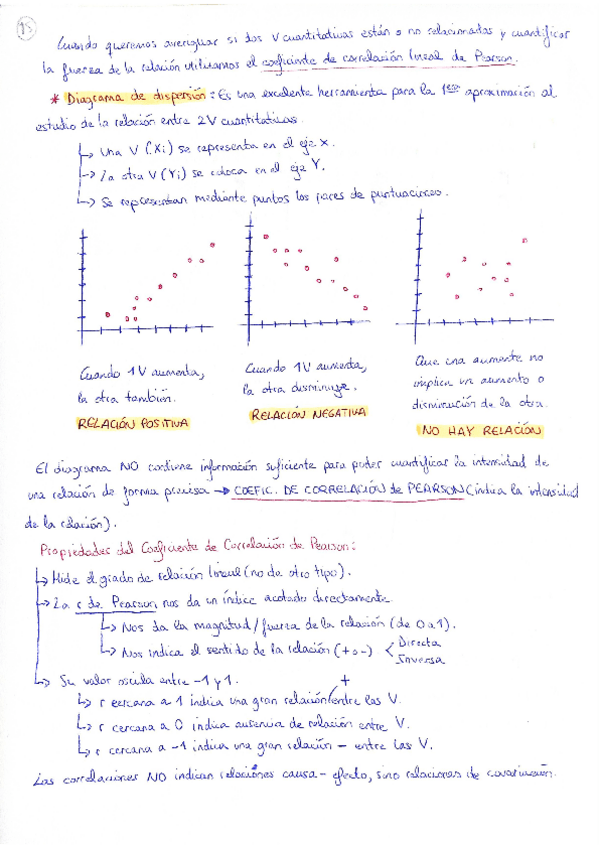 15
Cuando queremos averiguar si dos V cuantitativas están o no relacionadas y cuantificar
la fuerza de la relación utilizamos el coeficiente de correlación lineal de Pearson.
* Diagrama de dispersión: Es una excelente herramienta para la 1era aproximación al
estudio de la relación entre 2 V cuantitativas.
↳ Una V (Xi) se representa en el eje X.
↳ La otra V (Yi) se coloca en el eje Y.
↳ Se representan mediante puntos los pares de puntuaciones.
Cuando 1 V aumenta,
la otra también.
RELACIÓN POSITIVA
Cuando 1 V aumenta,
la otra disminuye.
RELACIÓN NEGATIVA
Que una aumente no
implica un aumento o
disminución de la otra.
NO HAY RELACIÓN
El diagrama NO contiene información suficiente para poder cuantificar la intensidad de
una relación de forma precisa → COEFIC. DE CORRELACIÓN de PEARSON (indica la intensidad
de la relación).
Propiedades del Coeficiente de Correlación de Pearson:
↳ Mide el grado de relación lineal (no de otro tipo).
↳ La r de Pearson nos da un índice acotado directamente
↳ Nos da la magnitud/fuerza de la relación (de 0 a 1).
↳ Nos indica el sentido de la relación (+ o -) < Directa
Inversa
↳ Su valor oscila entre -1 y 1.
↳ r cercana a 1 indica una gran relación + entre las V.
↳ r cercana a 0 indica ausencia de relación entre V.
↳ r cercana a -1 indica una gran relación - entre las V.
Las correlaciones NO indican relaciones causa-efecto, sino relaciones de covariación.